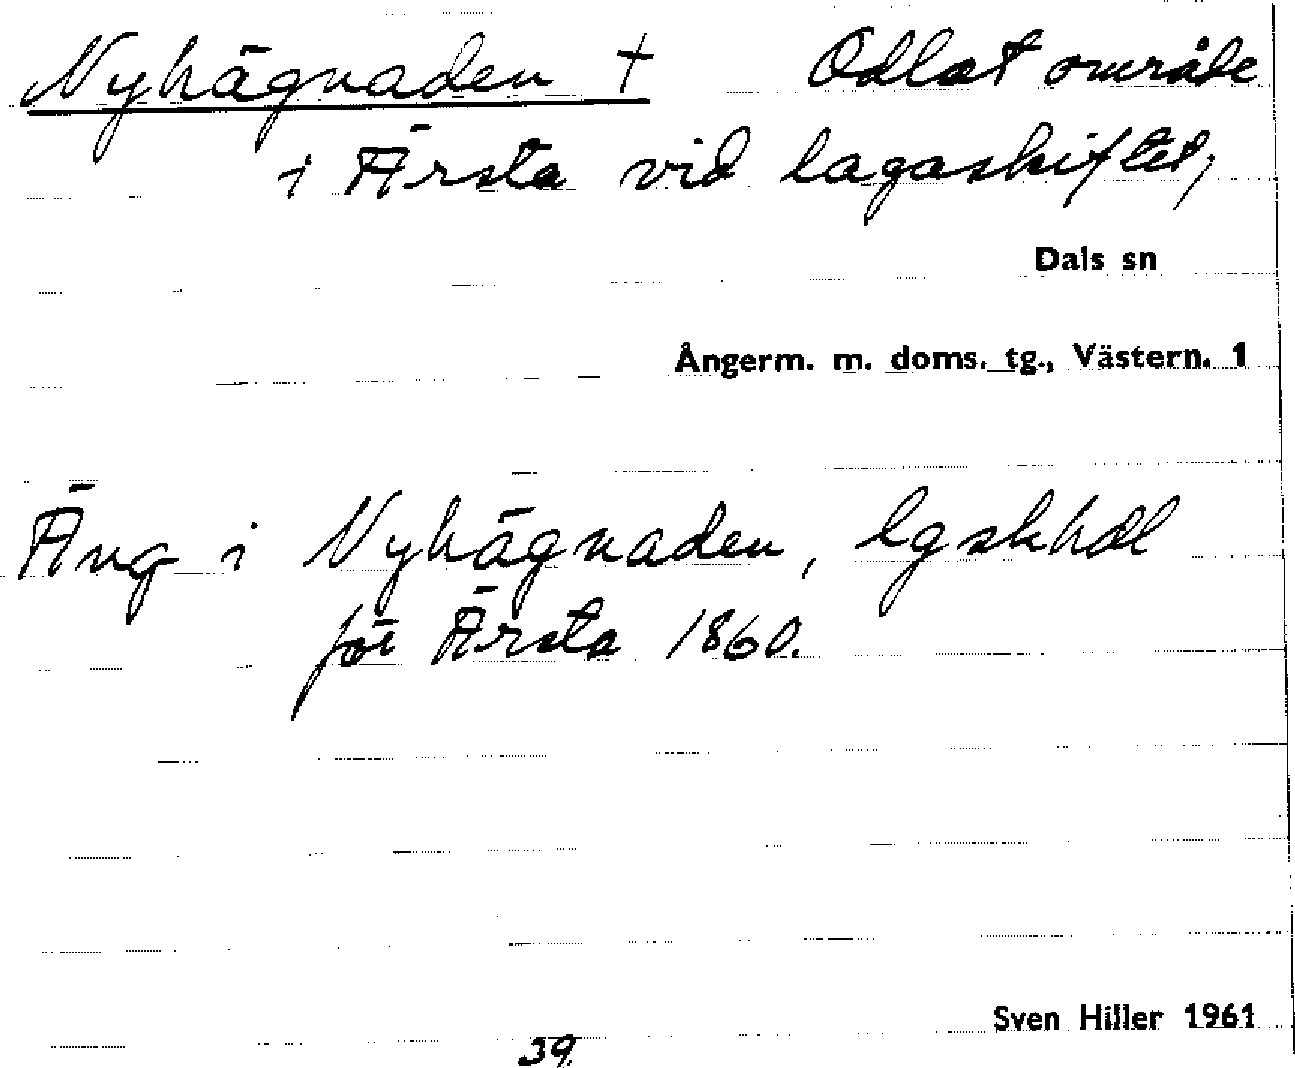 Nyhägnaden † Odlat område
i Ärsta vid lagaskiftet,
Dals sn
Ångerm. m. doms. tg., Västern. 1
Äng i Nyhägnaden, lgskhdl
för Ärsta 1860.
Sven Hiller 1961
39.